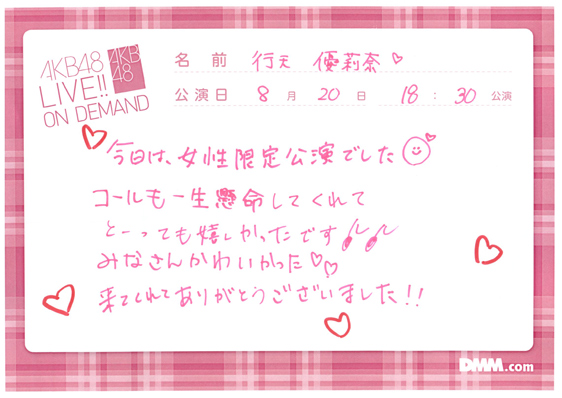 AKB48
LIVE!!
ON DEMAND
AKB
48
名前 行天 優莉奈
公演日 8月20日 18:30公演
今日は、女性限定公演でした
コールも一生懸命してくれて
とーっても嬉しかったです
みなさんかわいかった
来てくれてありがとうございました!!
DMM.com